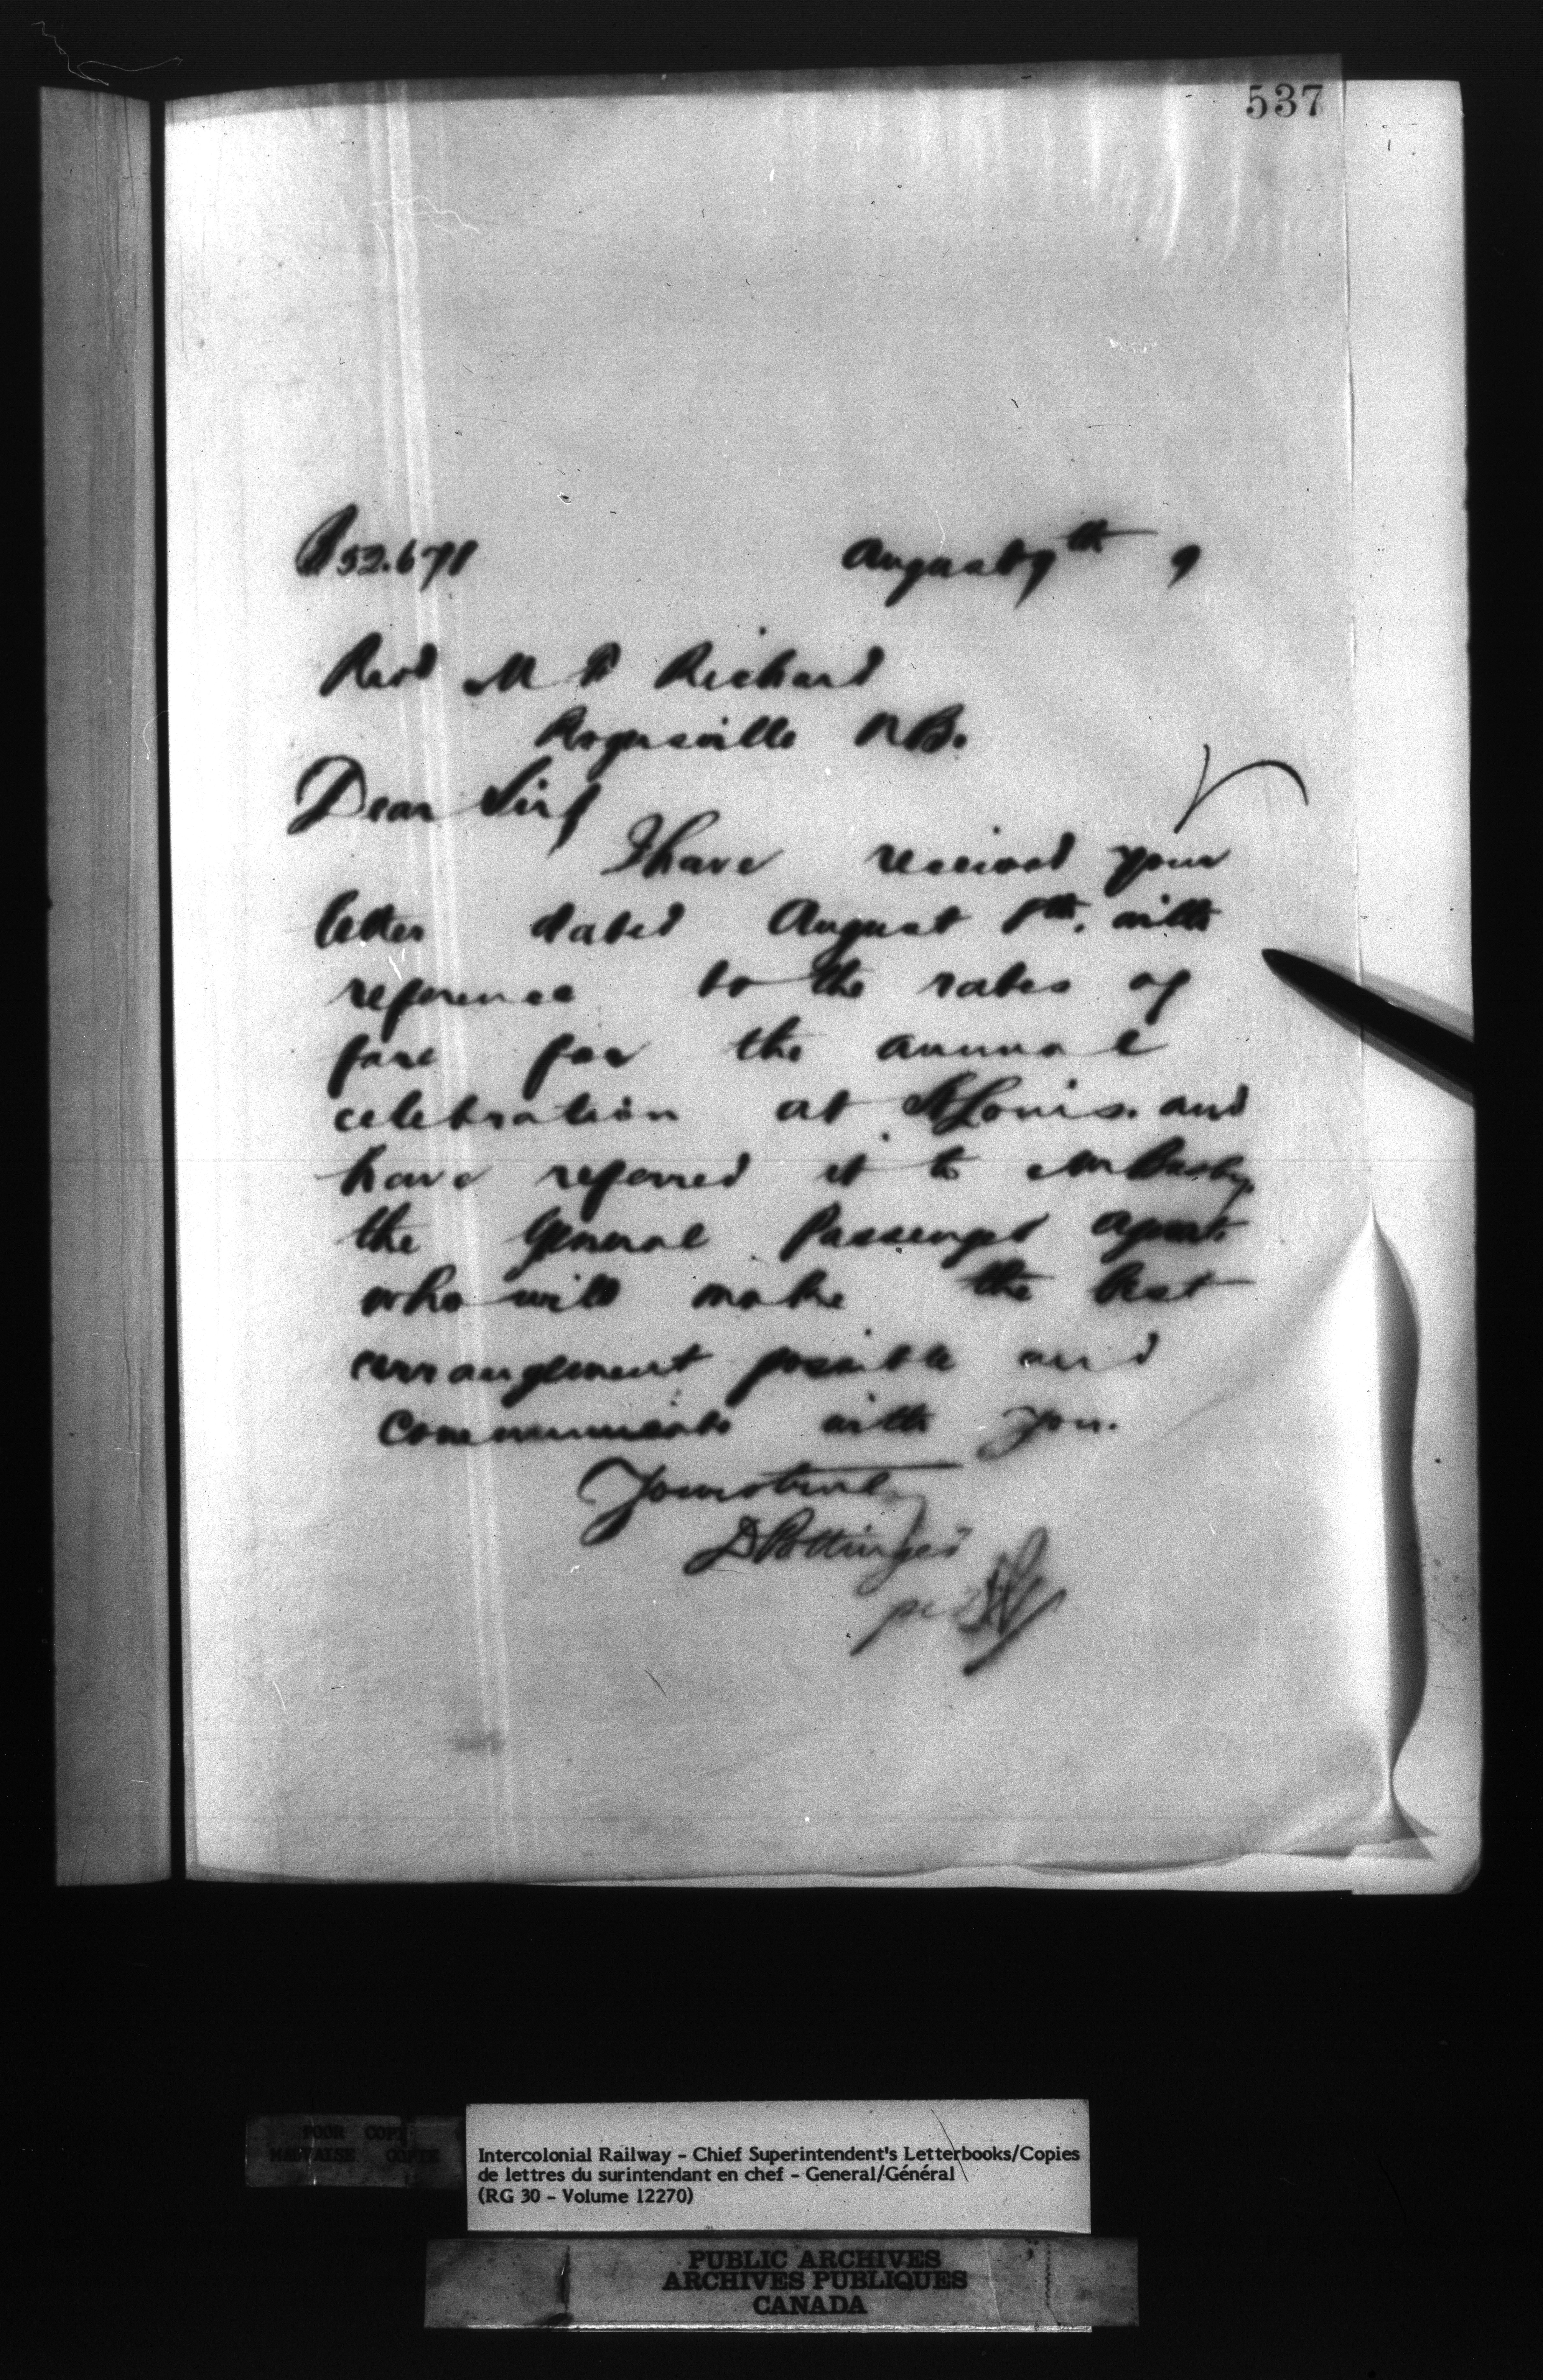 537
52.671
August 9th 9
Revd M F Richard
Rogersville NB.
Dear Sir
I have received your
letter dated August 8th. with
reference to the rates of
fare for the annual
celebration at St Louis. and
have referred it to Mr Busby,
the General Passenger Agent.
who will make the best
arrangement possible and
communicate with you.
Yours truly
D Pottinger
per
POOR COPY
MAUVAISE COPIE
Intercolonial Railway - Chief Superintendent's Letterbooks/Copies
de lettres du surintendant en chef - General/Général
(RG 30 - Volume 12270)
PUBLIC ARCHIVES
ARCHIVES PUBLIQUES
CANADA